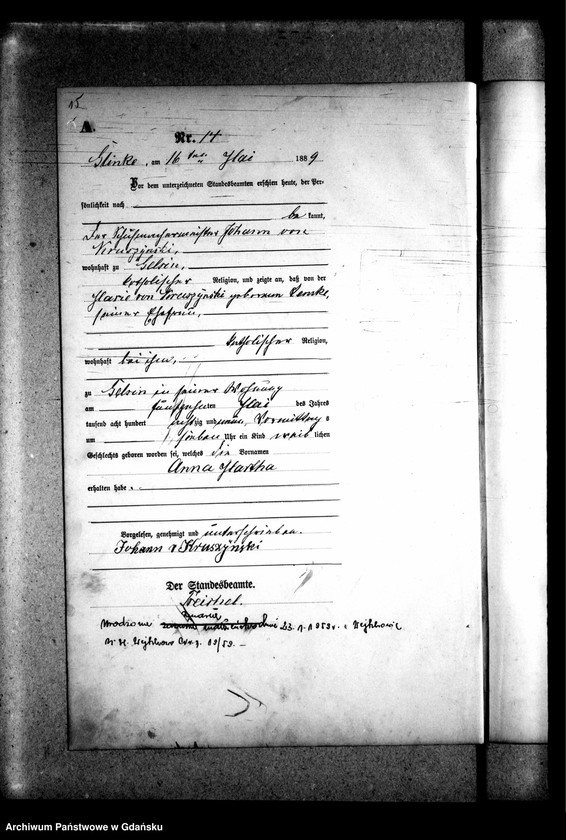 15
A.
Nr. 14
Glinke, am 16 ten Mai 1889
Vor dem unterzeichneten Standesbeamten erschien heute, der Per-
sönlichkeit nach
be kannt,
der Johann von
Kruszÿnski,
wohnhaft zu
katholischer Religion, und zeigte an, daß von der
Marie von Kruszÿnski geborenen
seiner Ehefrau,
katholischer Religion,
wohnhaft bei ihm,
zu in seiner Wohnung
am fünfzehnten Mai des Jahres
tausend acht hundert achtzig und neun, Vormittag s
um sieben Uhr ein Kind weib lichen
Geschlechts geboren worden sei, welches die Vornamen
Anna Martha
erhalten habe.
Vorgelesen, genehmigt und unterschrieben.
Johann v Kruszÿnski
Der Standesbeamte.
zmarła
23. 1. 1959r. w Wejherowie
09/59. –
Archiwum Państwowe w Gdańsku